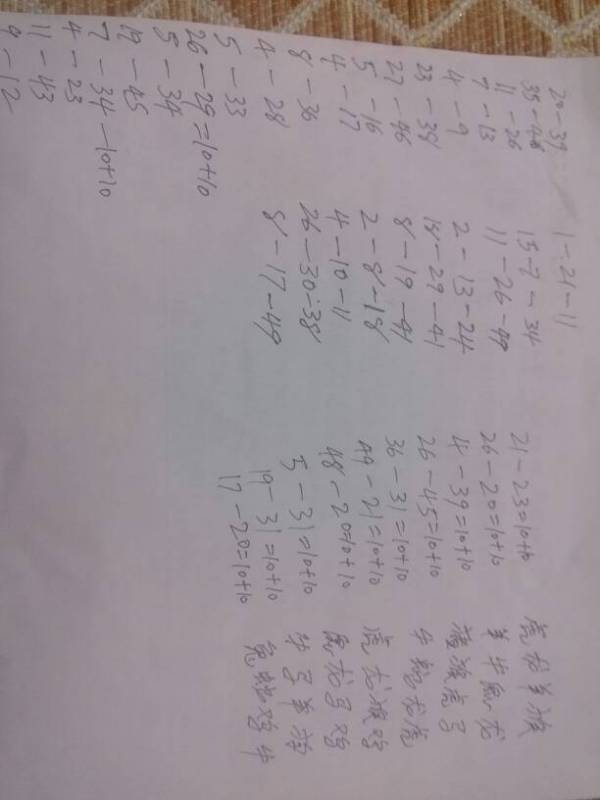 20-39
35-46
11-26
7-13
4-9
23-38
27-46
5-16
4-17
8-36
4-28
5-33
26-29=10+10
5-34
19-45
7-34-10+10
4-23
11-43
9-12
1-21-11
13-7-34
11-26-49
2-13-24
18-29-41
8-19-41
2-8-18
4-10-11
26-30-38
8-17-49
21-23=10+10
26-20=10+10
4-39=10+10
26-45=10+10
36-31=10+10
49-21=10+10
48-20=10+10
5-31=10+10
19-31=10+10
17-20=10+10
虎龙羊猴
羊牛兔龙
猴虎子
牛鸡龙虎
虎龙猴鸡
兔龙子鸡
牛子羊
兔蛇鸡牛